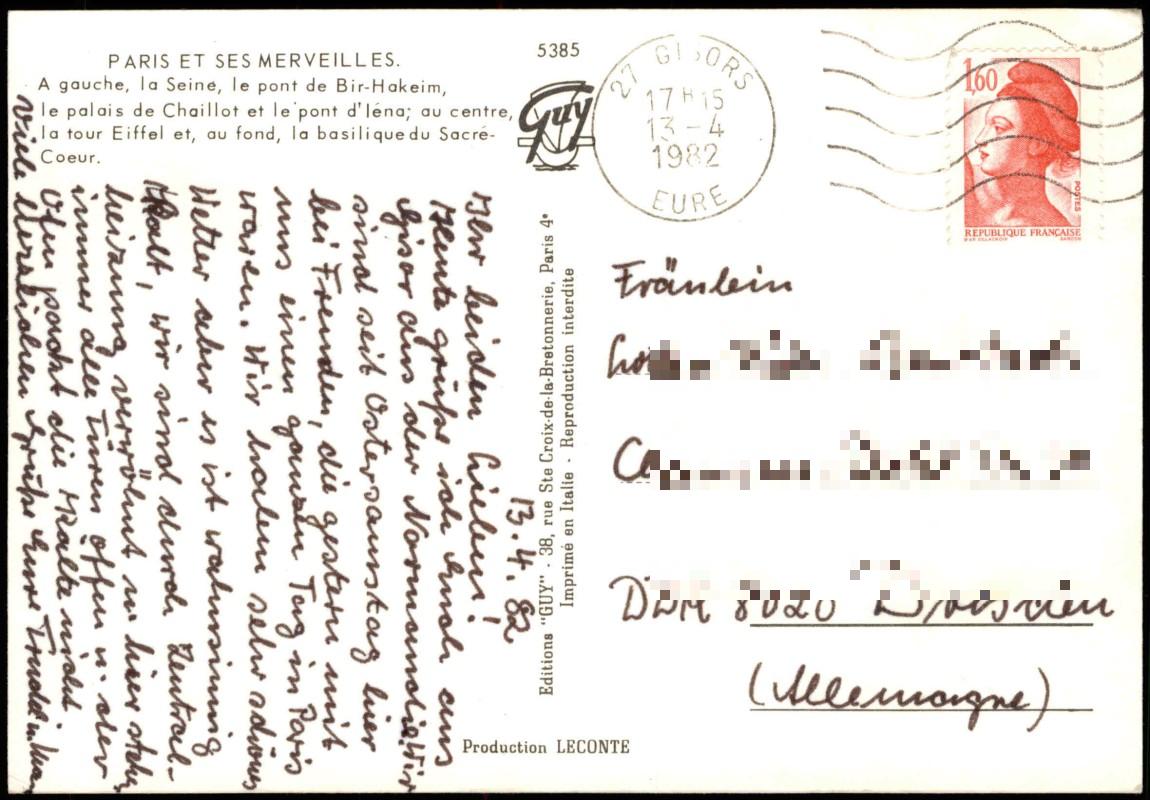 PARIS ET SES MERVEILLES.
A gauche, la Seine, le pont de Bir-Hakeim,
le palais de Chaillot et le pont d'Iéna; au centre,
la tour Eiffel et, au fond, la basilique du Sacré-
Coeur.
5385
Guy
27 GISORS
17 H 15
13 - 4
1982
EURE
1,60
POSTES
REPUBLIQUE FRANÇAISE
13.4.82
Ihr beiden Lieben!
Heute grüße ich Euch aus
Gisor aus der Normandie. Wir
sind seit Ostersamstag hier
bei Freunden, die gestern mit
uns einen ganzen Tag in Paris
waren. Wir haben sehr schönes
Wetter aber es ist wahnsinnig
kalt, wir sind durch Zentral-
heizung verwöhnt u. hier stehen
immer alle Türen offen u. der
Ofen packt die Kälte nicht
Viele herzlichen Grüße Eure Trudel u.
Editions "GUY" - 38, rue Ste Croix-de-la-Bretonnerie, Paris 4e
Imprimé en Italie - Reproduction interdite
Production LECONTE
Fräulein
DDR 8020 Dresden
(Allemagne)